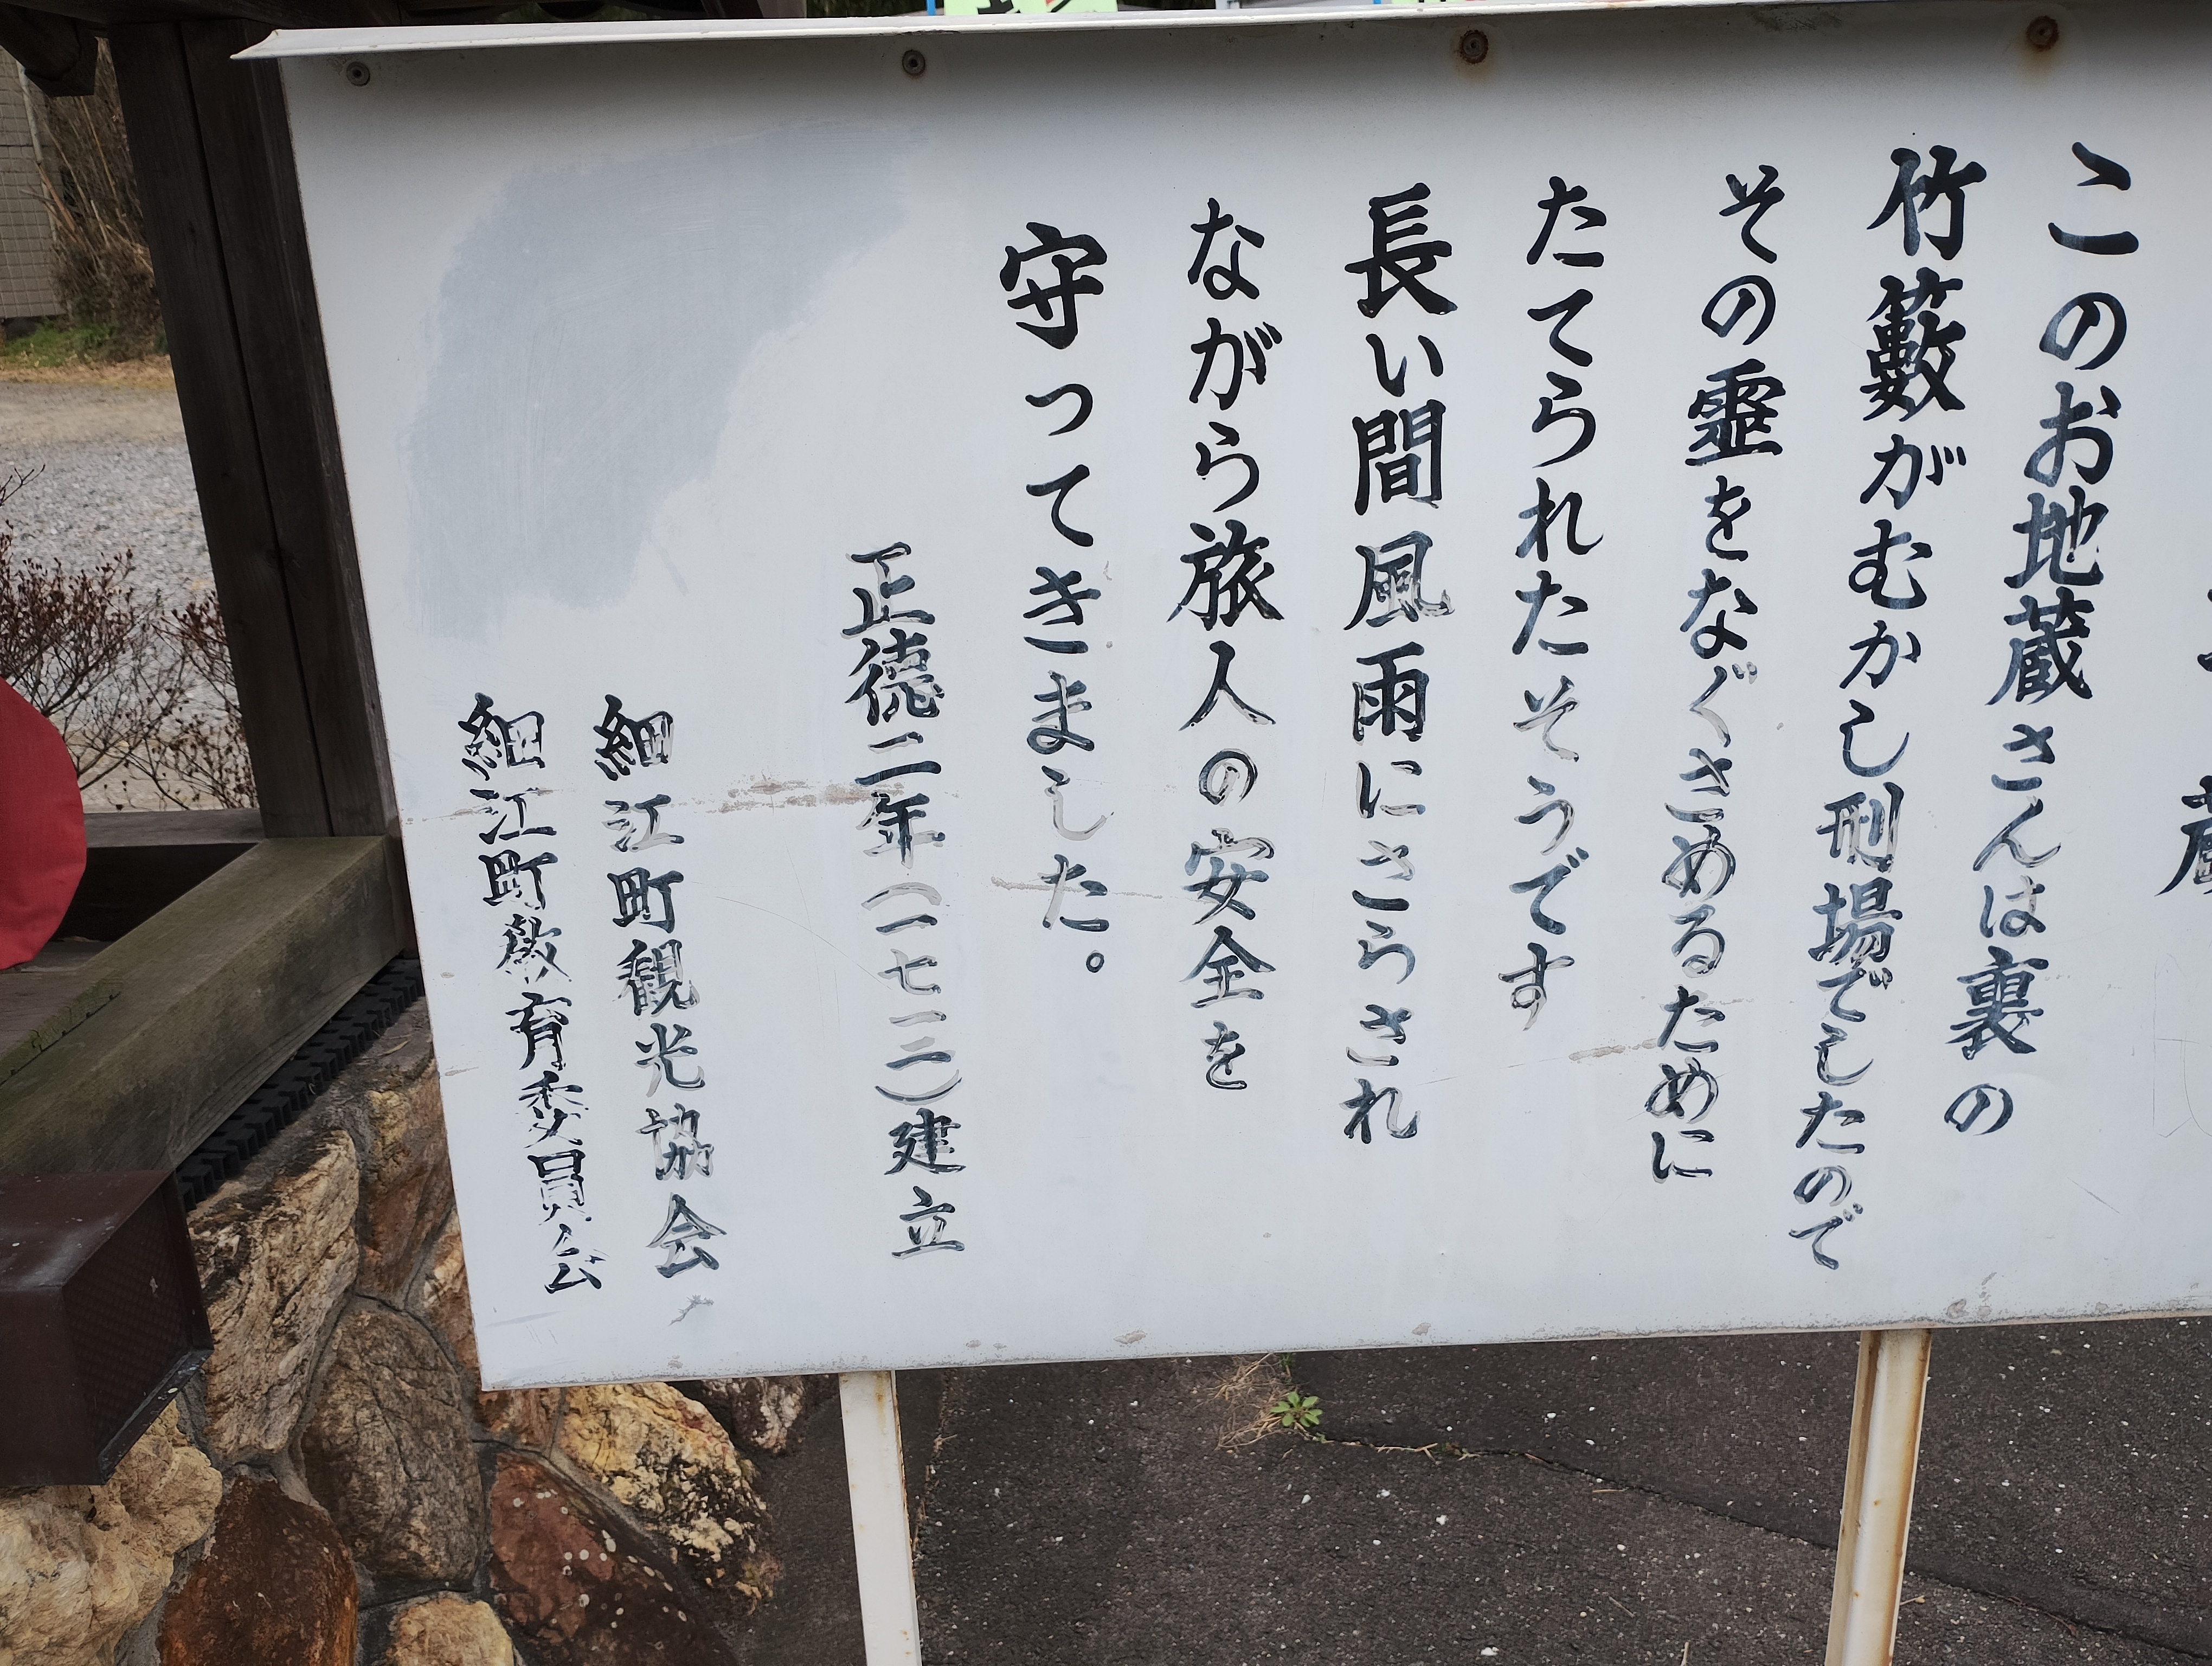 蔵
このお地蔵さんは裏の
竹籔がむかし刑場でしたので
その霊をなぐさめるために
たてられたそうです
長い間風雨にさらされ
ながら旅人の安全を
守ってきました。
正徳二年（一七一二）建立
細江町観光協会
細江町教育委員会